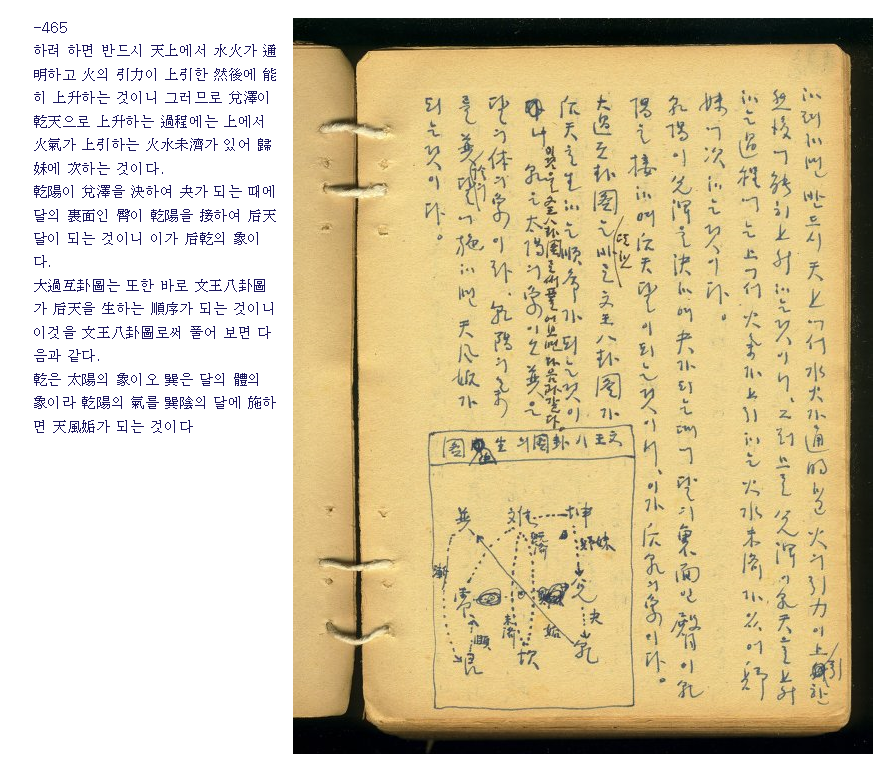 -465
하려 하면 반드시 天上에서 水火가 通
明하고 火의 引力이 上引한 然後에 能
히 上升하는 것이니 그러므로 兌澤이
乾天으로 上升하는 過程에는 上에서
火氣가 上引하는 火水未濟가 있어 歸
妹에 次하는 것이다.
乾陽이 兌澤을 決하여 夬가 되는 때에
달의 裏面인 臀이 乾陽을 接하여 后天
달이 되는 것이니 이가 后乾의 象이
다.
大過互卦圖는 또한 바로 文王八卦圖
가 后天을 生하는 順序가 되는 것이니
이것을 文王八卦圖로써 풀어 보면 다
음과 같다.
乾은 太陽의 象이오 巽은 달의 體의
象이라 乾陽의 氣를 巽陰의 달에 施하
면 天風姤가 되는 것이다
하려 하면 반드시 天上에서 水火가 通明하고 火의 引力이 上引한
然後에 能히 上升하는 것이니 그러므로 兌澤이 乾天으로 上升
하는 過程에는 上에서 火氣가 上引하는 火水未濟가 있어 歸
妹에 次하는 것이다.
乾陽이 兌澤을 決하여 夬가 되는 때에 달의 裏面인 臀이 乾
陽을 接하여 后天달이 되는 것이니, 이가 后乾의 象이다.
大過互卦圖는 또한 바로 文王八卦圖가
后天을 生하는 順序가 되는 것이니
이것을 文王八卦圖로써 풀어 보면 다음과 같다.
乾은 太陽의 象이오 巽은
달의 体의 象이라, 乾陽의 氣
를 巽陰의 달에 施하면 天風姤가
되는 것이다.
文王八卦圖의 生 圖
坤
歸妹
兌
夬
乾
離
旣濟
未濟
坎
姤
巽
漸
震
頤
艮